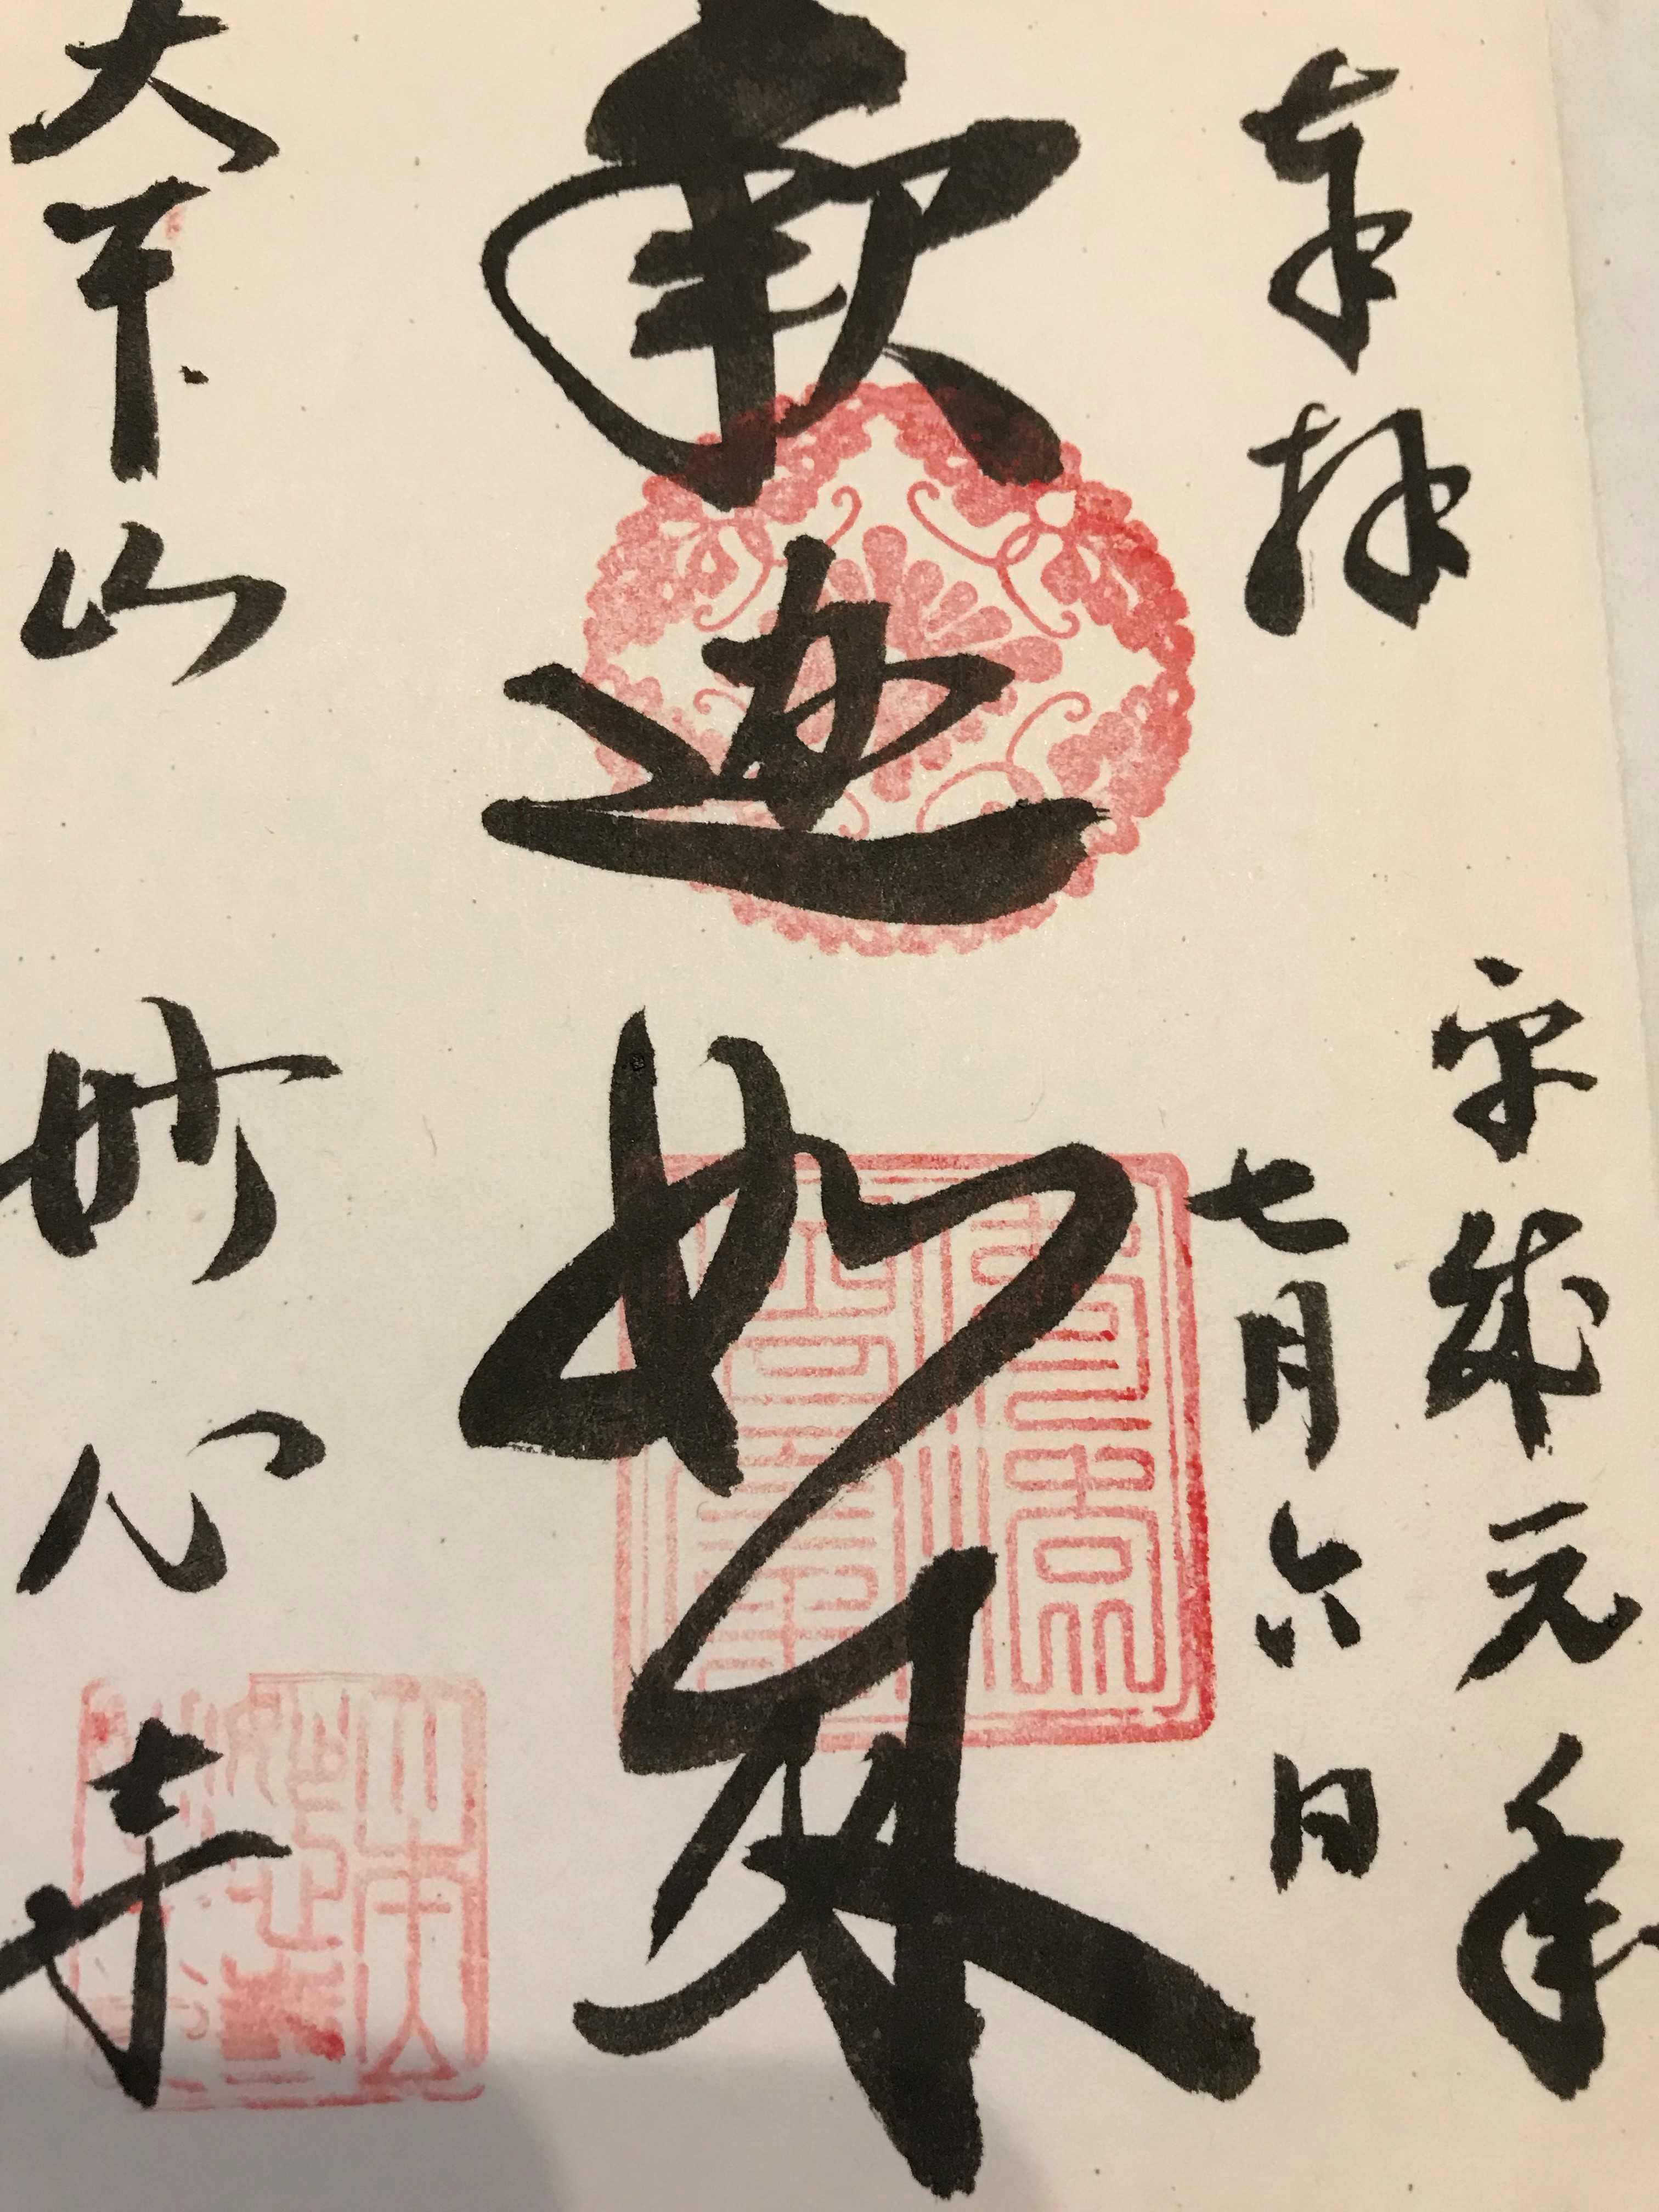 奉拝
平成元年
七月六日
釈迦如来
大本山 妙心寺